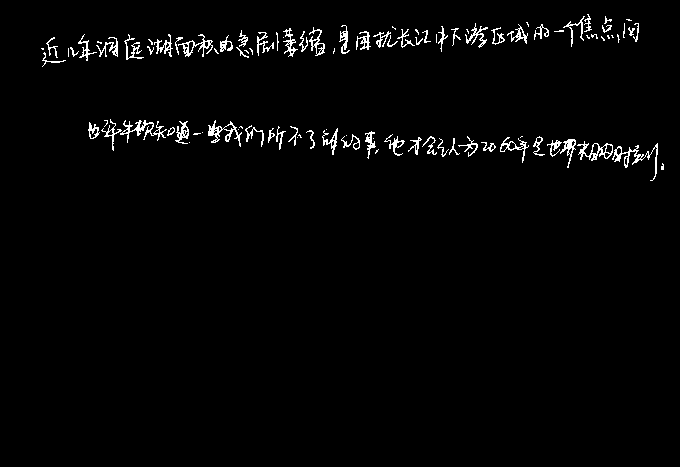 近几年洞庭湖面积的急剧萎缩,是困扰长江中下游区域的一个焦点问
也许牛顿知道一些我们所不了解的事,他才会认为2060年是世界末日的时刻。